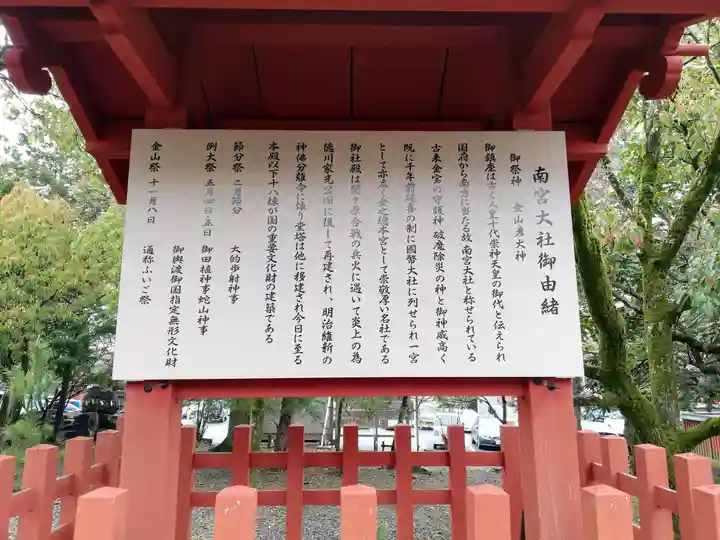 南宮大社御由緒
御祭神 金山彦大神
御鎮座は古く人皇十代崇神天皇の御代と伝えられ
国府から南方に当たる故 南宮大社と称せられている
古来金宮の守護神 破魔除災の神と御神威高く
既に千年前延喜の制に國幣大社に列せられ一宮
として亦全く金之総本宮として崇敬厚い名社である
御社殿は関ヶ原合戦の兵火に遇いて炎上の為
徳川家光公旧に復して再建され、明治維新の
神佛分離令に依り堂塔は他に移建され今日に至る
本殿以下十八棟が国の重要文化財の建築である
節分祭 二月節分 大的歩射神事
例大祭 五月四日・五日 御田植神事蛇山神事
御輿渡御国指定無形文化財
金山祭 十一月八日 通称ふいご祭